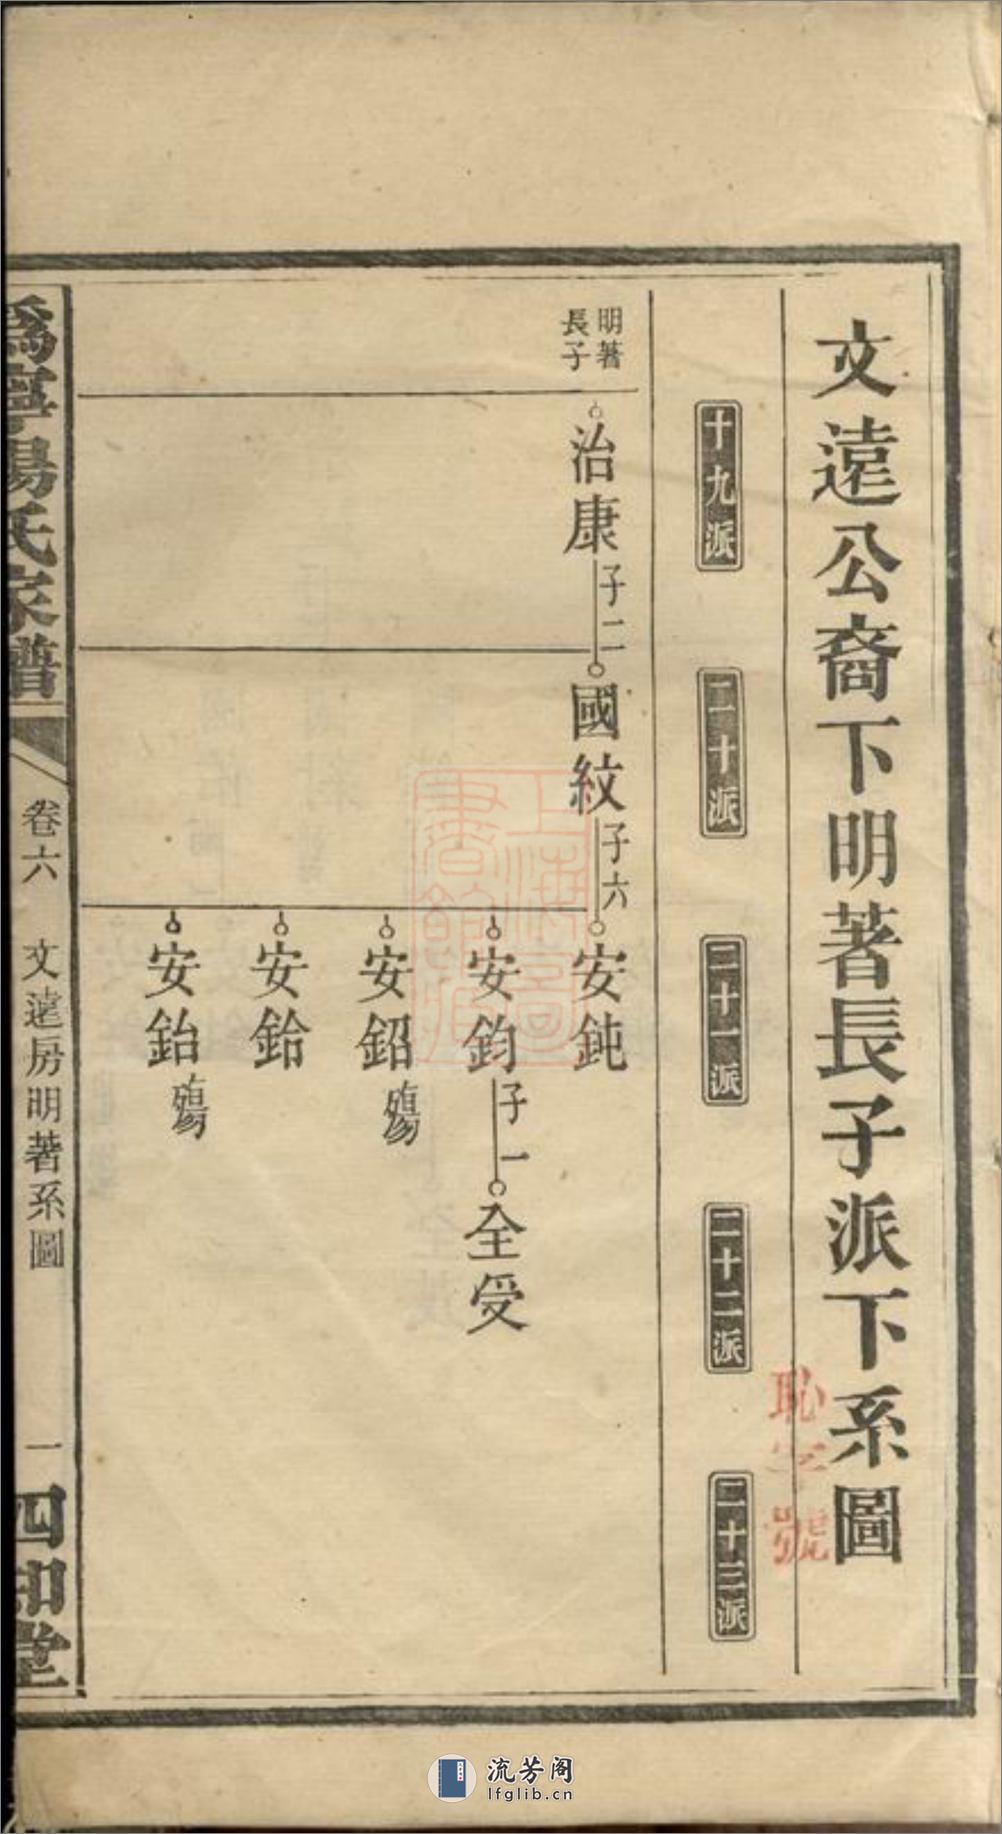 文遠公裔下明著長子派下系圖
恥字號
十九派
二十派
二十一派
二十二派
二十三派
明著
長子
治康
子二
國紋
子六
安鈍
安鈞
子一
全受
安鉊
殤
安鉿
安鈶
殤
上海圖書館藏
為寧楊氏家譜
卷六
文遠房明著系圖
一
四知堂
流芳阁
lfglib.cn